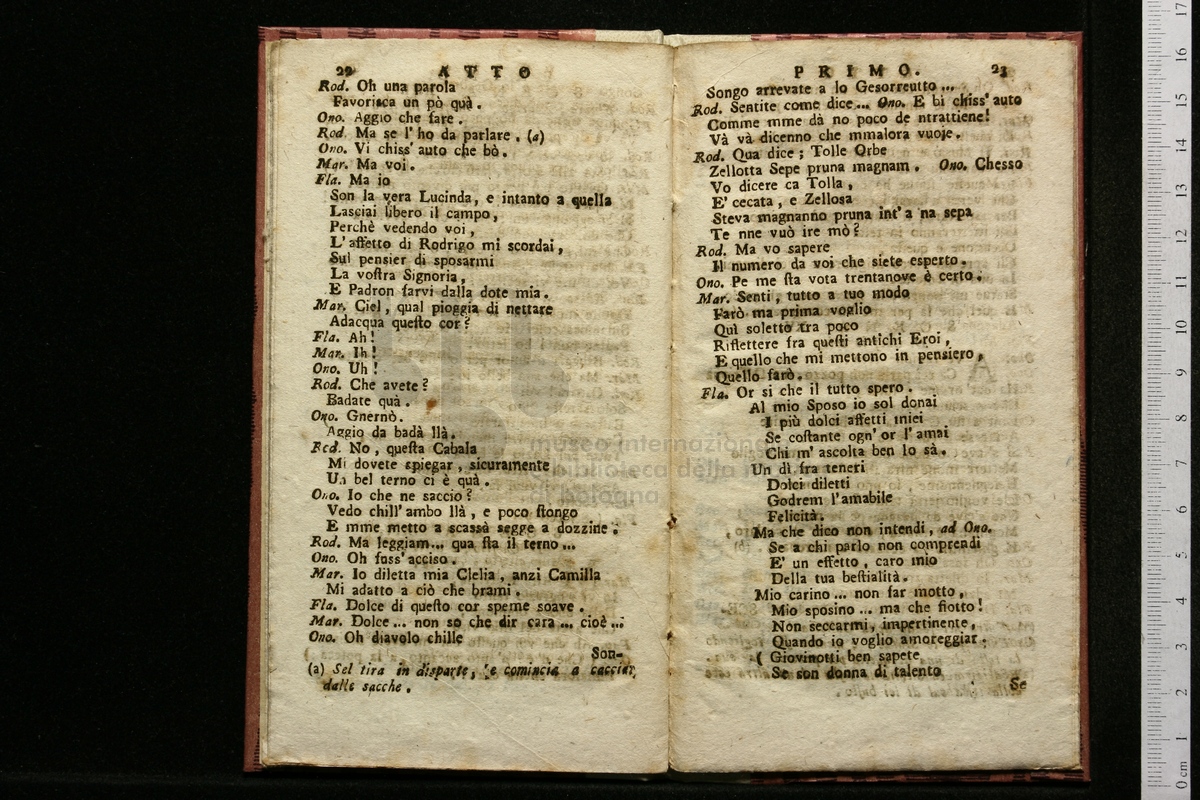 22 ATTO
Rod. Oh una parola
Favorisca un pò quà.
Ono. Aggio che fare.
Rod. Ma se l'ho da parlare. (a)
Ono. Vi chiss' auto che bò.
Mar. Ma voi.
Fla. Ma io
Son la vera Lucinda, e intanto a quella
Lasciai libero il campo,
Perchè vedendo voi,
L'affetto di Rodrigo mi scordai,
Sul pensier di sposarmi
La vostra Signoria,
E Padron farvi dalla dote mia.
Mar. Ciel, qual pioggia di nettare
Adacqua questo cor?
Fla. Ah!
Mar. Ih!
Ono. Uh!
Rod. Che avete?
Badate quà.
Ono. Gnernò.
Aggio da badà llà.
Rod. No, questa Cabala
Mi dovete spiegar, sicuramente
Un bel terno ci è quà.
Ono. Io che ne saccio?
Vedo chill' ambo llà, e poco stongo
E mme metto a scassà segge a dozzine.
Rod. Ma leggiam... qua sta il terno...
Ono. Oh fuss' acciso.
Mar. Io diletta mia Clelia, anzi Camilla
Mi adatto a ciò che brami.
Fla. Dolce di questo cor speme soave.
Mar. Dolce... non so che dir cara... cioè...
Ono. Oh diavolo chille
Son-
(a) Sel tira in disparte, e comincia a cacciar
dalle sacche.
PRIMO. 23
Songo arrevate a lo Gesorreutto...
Rod. Sentite come dice... Ono. E bi chiss' auto
Comme mme dà no poco de ntrattiene!
Và và dicenno che mmalora vuoje.
Rod. Qua dice; Tolle Orbe
Zellotta Sepe pruna magnam. Ono. Chesso
Vo dicere ca Tolla,
E' cecata, e Zellosa
Steva magnanno pruna int' a na sepa
Te nne vuò ire mò?
Rod. Ma vo sapere
Il numero da voi che siete esperto.
Ono. Pe me sta vota trentanove è certo.
Mar. Senti, tutto a tuo modo
Farò ma prima voglio
Quì soletto tra poco
Riflettere fra questi antichi Eroi,
E quello che mi mettono in pensiero,
Quello farò.
Fla. Or sì che il tutto spero.
Al mio Sposo io sol donai
I più dolci affetti miei
Se costante ogn'or l'amai
Chi m'ascolta ben lo sà.
Un dì fra teneri
Dolci diletti
Godrem l'amabile
Felicità.
Ma che dico non intendi, ad Ono.
Se a chi parlo non comprendi
E' un effetto, caro mio
Della tua bestialità.
Mio carino... non far motto,
Mio sposino... ma che fiotto!
Non seccarmi, impertinente,
Quando io voglio amoreggiar.
( Giovinotti ben sapete
Se son donna di talento
Se
museo internazionale
biblioteca della
di bologna